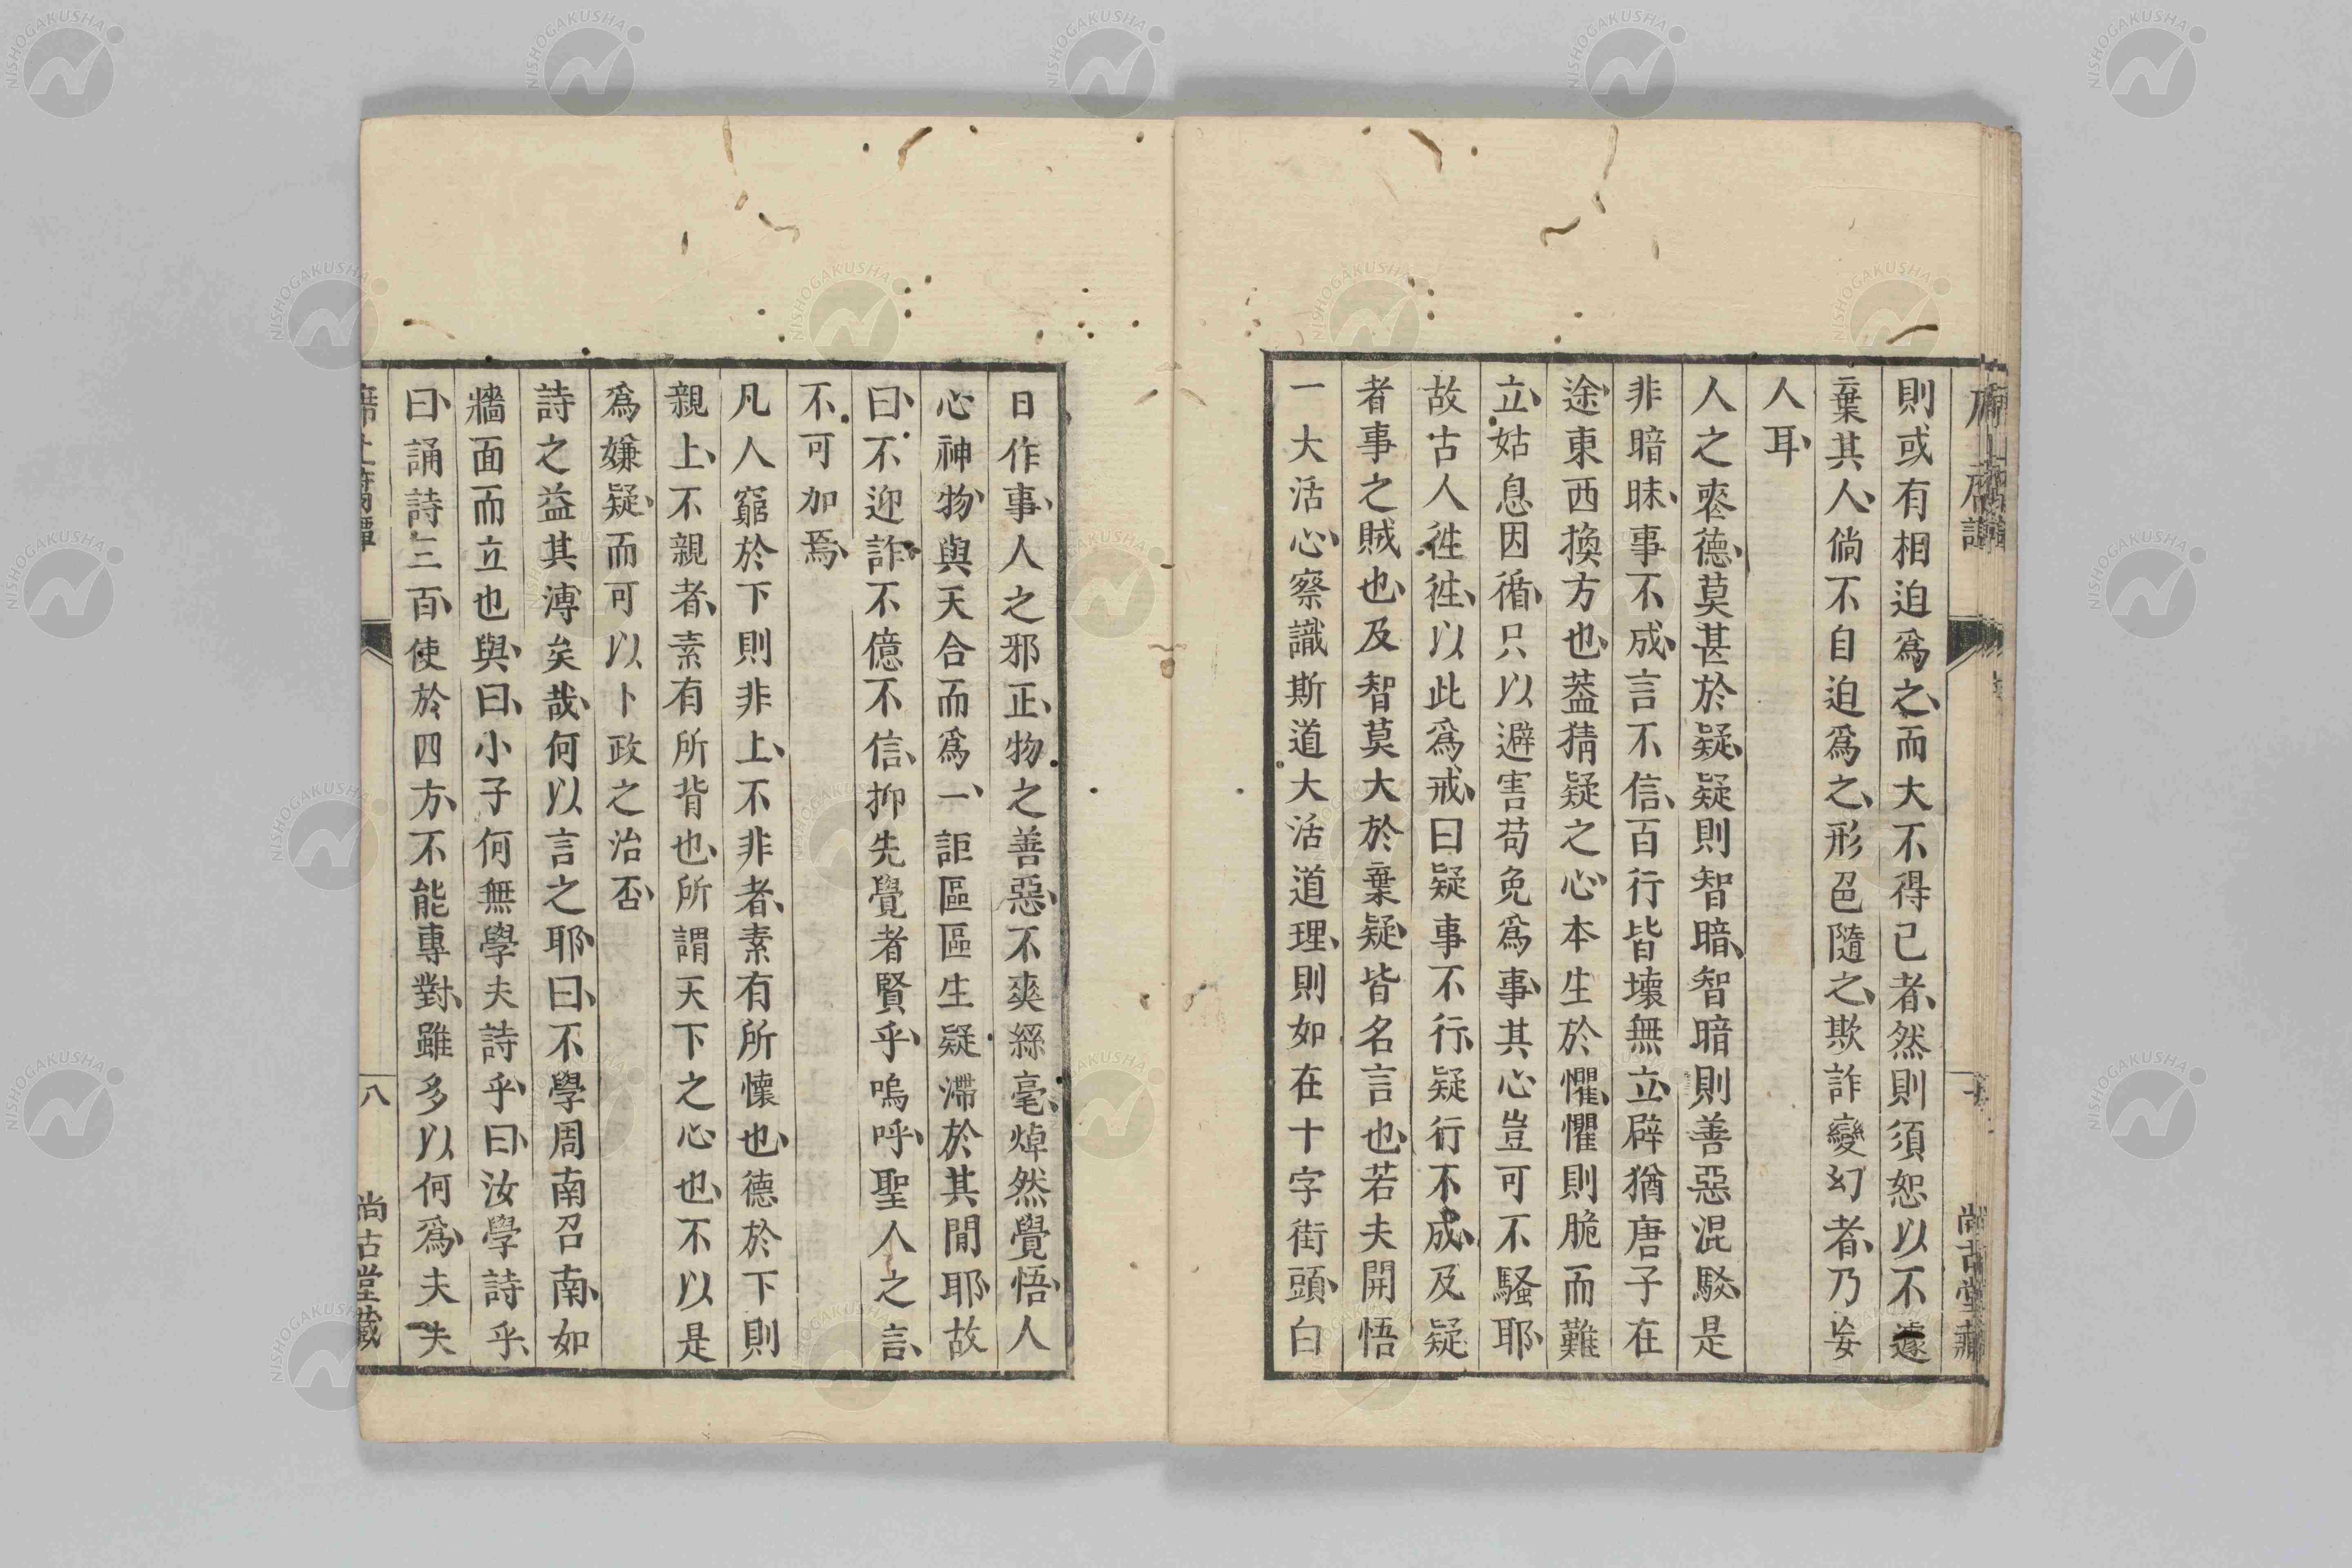 則或有相迫爲之、而大不得已者、然則須恕以不遽
棄其人、倘不自迫爲之、形色隨之、欺詐變幻者、乃妄
人耳、
人之悪德、莫甚於疑、疑則智暗、智暗則善惡混駁、是
非暗昧、事不成、言不信、百行皆壞無立、辟猶唐子在
途、東西換方也、蓋猜疑之心、本生於懼、懼則脆而難
立、姑息因循、只以避害苟免爲事、其心豈可不騷耶、
故古人徃徃、以此爲戒、曰疑事不行、疑行不成、及疑
者事之賊也、及智莫大於棄疑、皆名言也、若夫開悟
一大活心、察識斯道大活道理、則如在十字街頭、白
日作事、人之邪正、物之善惡、不爽絲毫、焯然覺悟、人
心神物、與天合而爲一、詎區區生疑滯於其間耶、故
曰、不迎詐、不億不信、抑先覺者賢乎、嗚呼、聖人之言、
不可加焉、
凡人窮於下則非上、不非者、素有所懷也、德於下則
親上、不親者、素有所背也、所謂天下之心也、不以是
爲嫌疑、而可以卜政之治否、
詩之益其溥矣哉、何以言之耶、曰、不學周南召南、如
牆面而立也與、曰、小子何無學夫詩乎、曰、汝學詩乎、
曰、誦詩三百、使於四方、不能專對、雖多以何爲、夫夫
八
尚古堂藏
NISHOGAKUSHA